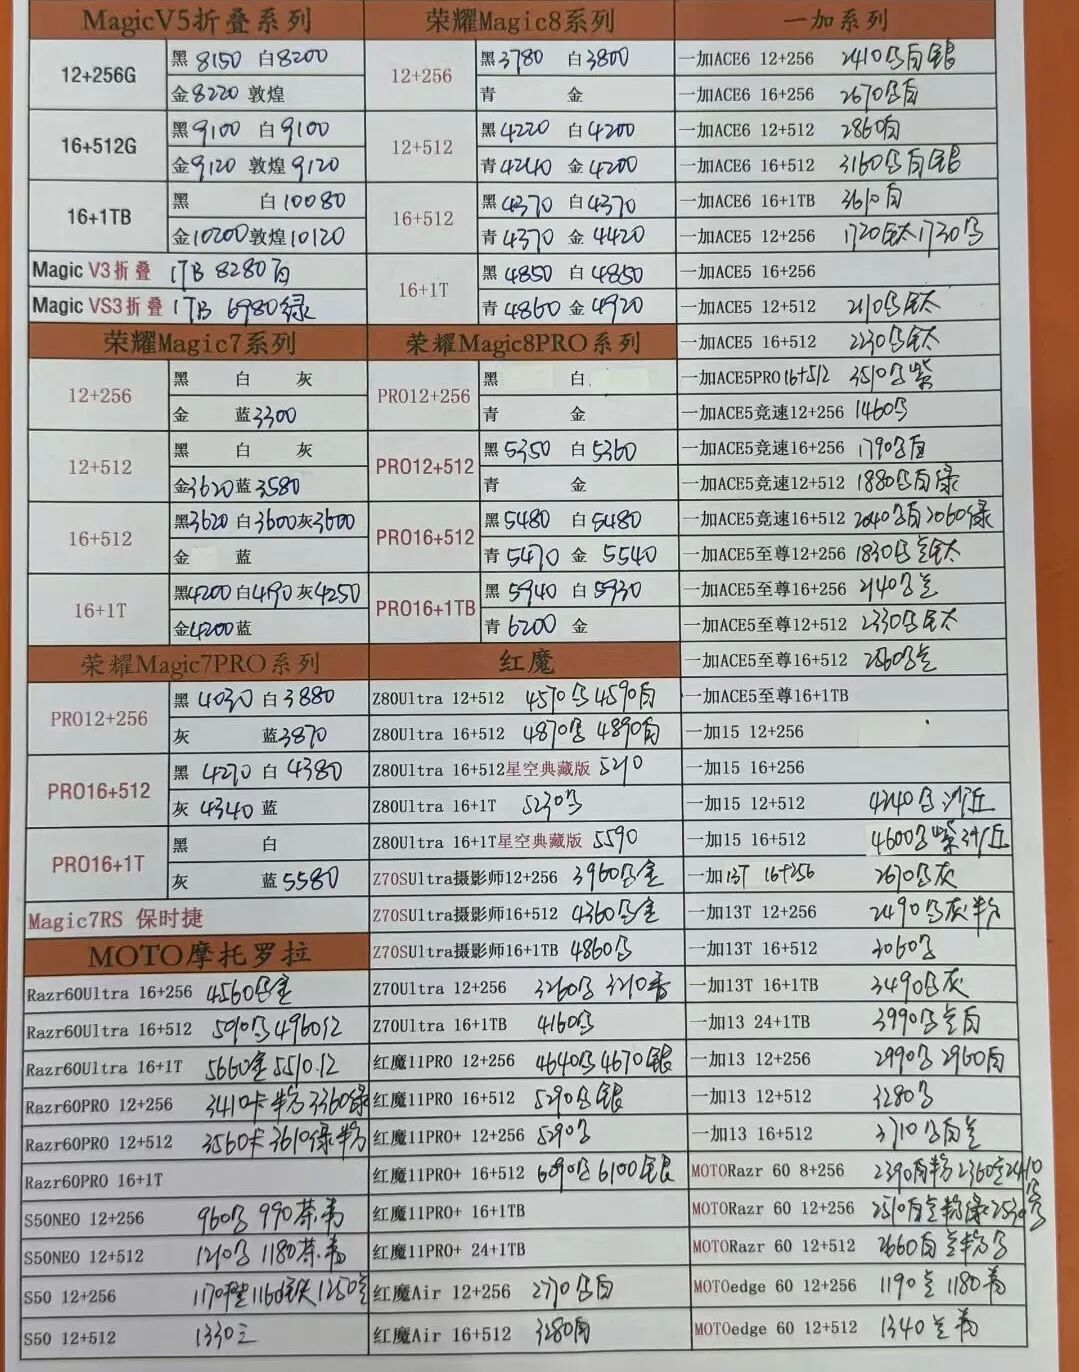 MagicV5折叠系列
12+256G
黑8150 白8200
金8220 敦煌
16+512G
黑9100 白9100
金9120 敦煌9120
16+1TB
黑 白10080
金10200敦煌10120
Magic V3折叠 1TB 8280白
Magic VS3折叠 1TB 6980绿
荣耀Magic7系列
12+256
黑 白 灰
金 蓝3300
12+512
黑 白 灰
金3620蓝3580
16+512
黑3620 白3600灰3600
金 蓝
16+1T
黑4200白4190灰4250
金4200蓝
荣耀Magic7PRO系列
PRO12+256
黑 4030 白3880
灰 蓝3870
PRO16+512
黑 4270 白 4380
灰 4340 蓝
PRO16+1T
黑 白
灰 蓝5580
Magic7RS 保时捷
MOTO摩托罗拉
Razr60Ultra 16+256 4560乌金
Razr60Ultra 16+512 4960红
Razr60Ultra 16+1T 5660金 5510.红
Razr60PRO 12+256 3410卡粉 3360绿
Razr60PRO 12+512 3560卡 3610绿粉
Razr60PRO 16+1T
S50NEO 12+256 960乌 990茶.青
S50NEO 12+512 1210乌 1180茶.青
S50 12+256
S50 12+512 1330
荣耀Magic8系列
12+256
黑3780 白3800
青 金
12+512
黑4220 白4200
青4240 金4200
16+512
黑4370 白4370
青4370 金 4420
16+1T
黑 4850 白 4850
青 4860 金4920
荣耀Magic8PRO系列
PRO12+256
黑 白
青 金
PRO12+512
黑5350 白 5360
青 金
PRO16+512
黑5480 白5480
青5470 金 5540
PRO16+1TB
黑 5940 白5930
青6200 金
红魔
Z80Ultra 12+512 4570乌 4590白
Z80Ultra 16+512 4870乌 4890白
Z80Ultra 16+512星空典藏版 5210
Z80Ultra 16+1T 5230乌
Z80Ultra 16+1T星空典藏版 5590
Z70SUltra摄影师12+256 3960乌金
Z70SUltra摄影师16+512 4360乌金
Z70SUltra摄影师16+1TB 4860乌
Z70Ultra 12+256 3260乌 3210青
Z70Ultra 16+1TB 4160乌
红魔11PRO 12+256 4640乌 4670银
红魔11PRO 16+512 5290乌银
红魔11PRO+ 12+256 5290乌
红魔11PRO+ 16+512 6090乌 6100银
红魔11PRO+ 16+1TB
红魔11PRO+ 24+1TB
红魔Air 12+256 2770乌白
红魔Air 16+512 3280白
一加系列
一加ACE6 12+256 2410乌白银
一加ACE6 16+256 2670乌白
一加ACE6 12+512 2860白
一加ACE6 16+512 3160乌白银
一加ACE6 16+1TB 3610白
一加ACE5 12+256 1720钛1730乌
一加ACE5 16+256
一加ACE5 12+512 2110乌钛
一加ACE5 16+512 2230乌钛
一加ACE5PRO 16+512 3510乌紫
一加ACE5竞速12+256 1460乌
一加ACE5竞速16+256 1790乌白
一加ACE5竞速12+512 1880乌白绿
一加ACE5竞速16+512 2040乌白2060绿
一加ACE5至尊12+256 1830乌兰钛
一加ACE5至尊16+256 2140乌兰
一加ACE5至尊12+512 2330乌钛
一加ACE5至尊16+512 2560乌兰
一加ACE5至尊16+1TB
一加15 12+256
一加15 16+256
一加15 12+512 4240乌沙丘
一加15 16+512 4600乌紫沙丘
一加13T 16+256 2670乌灰
一加13T 12+256 2490乌灰粉
一加13T 16+512 3060乌
一加13T 16+1TB 3490乌灰
一加13 24+1TB 3990乌兰白
一加13 12+256 2990乌 2960白
一加13 12+512 3280乌
一加13 16+512 3710乌白兰
MOTORazr 60 8+256 2390白粉2360兰2410乌
MOTORazr 60 12+256 2510白兰粉绿2530乌
MOTORazr 60 12+512 2660白兰粉乌
MOTOedge 60 12+256 1190兰 1180青
MOTOedge 60 12+512 1340兰青